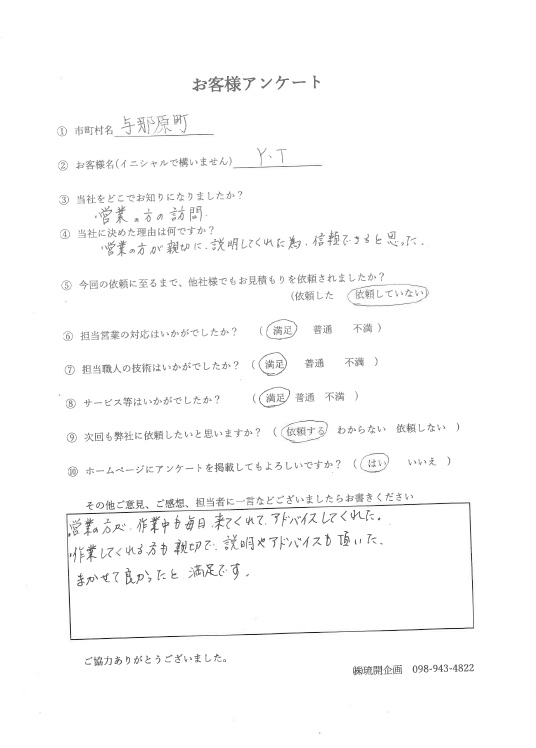 お客様アンケート
① 市町村名 与那原町
② お客様名(イニシャルで構いません) Y.T
③ 当社をどこでお知りになりましたか？
・営業の方の訪問.
④ 当社に決めた理由は何ですか？
営業の方が親切に、説明してくれた為、信頼できると思った.
⑤ 今回の依頼に至るまで、他社様でもお見積もりを依頼されましたか？
(依頼した 依頼していない)
⑥ 担当営業の対応はいかがでしたか？ ( 満足 普通 不満 )
⑦ 担当職人の技術はいかがでしたか？ ( 満足 普通 不満 )
⑧ サービス等はいかがでしたか？ ( 満足 普通 不満 )
⑨ 次回も弊社に依頼したいと思いますか？ ( 依頼する わからない 依頼しない )
⑩ ホームページにアンケートを掲載してもよろしいですか？ ( はい いいえ )
その他ご意見、ご感想、担当者に一言などございましたらお書きください
営業の方が、作業中も毎日来てくれて、アドバイスしてくれた.
作業してくれる方も親切で、説明やアドバイスも頂いた.
まかせて良かったと満足です.
ご協力ありがとうございました。
㈱琉開企画 098-943-4822